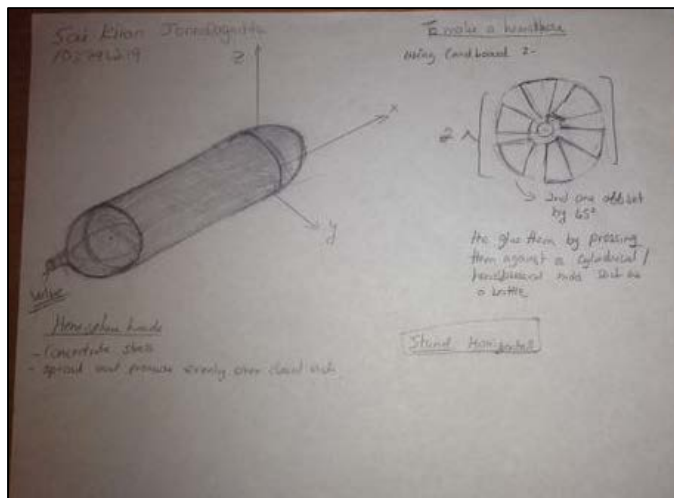 Sai Kiran
z
x
y
Valve
Hemisphere heads
- Concentrate stress
- spread out pressure evenly over closed ends
To make a hemisphere
Using Cardboard :-
2 x
→ 2nd one offset
by 45°
glue them by pressing
them against a cylindrical /
hemispherical mold such as
a bottle
Stand Horizontal